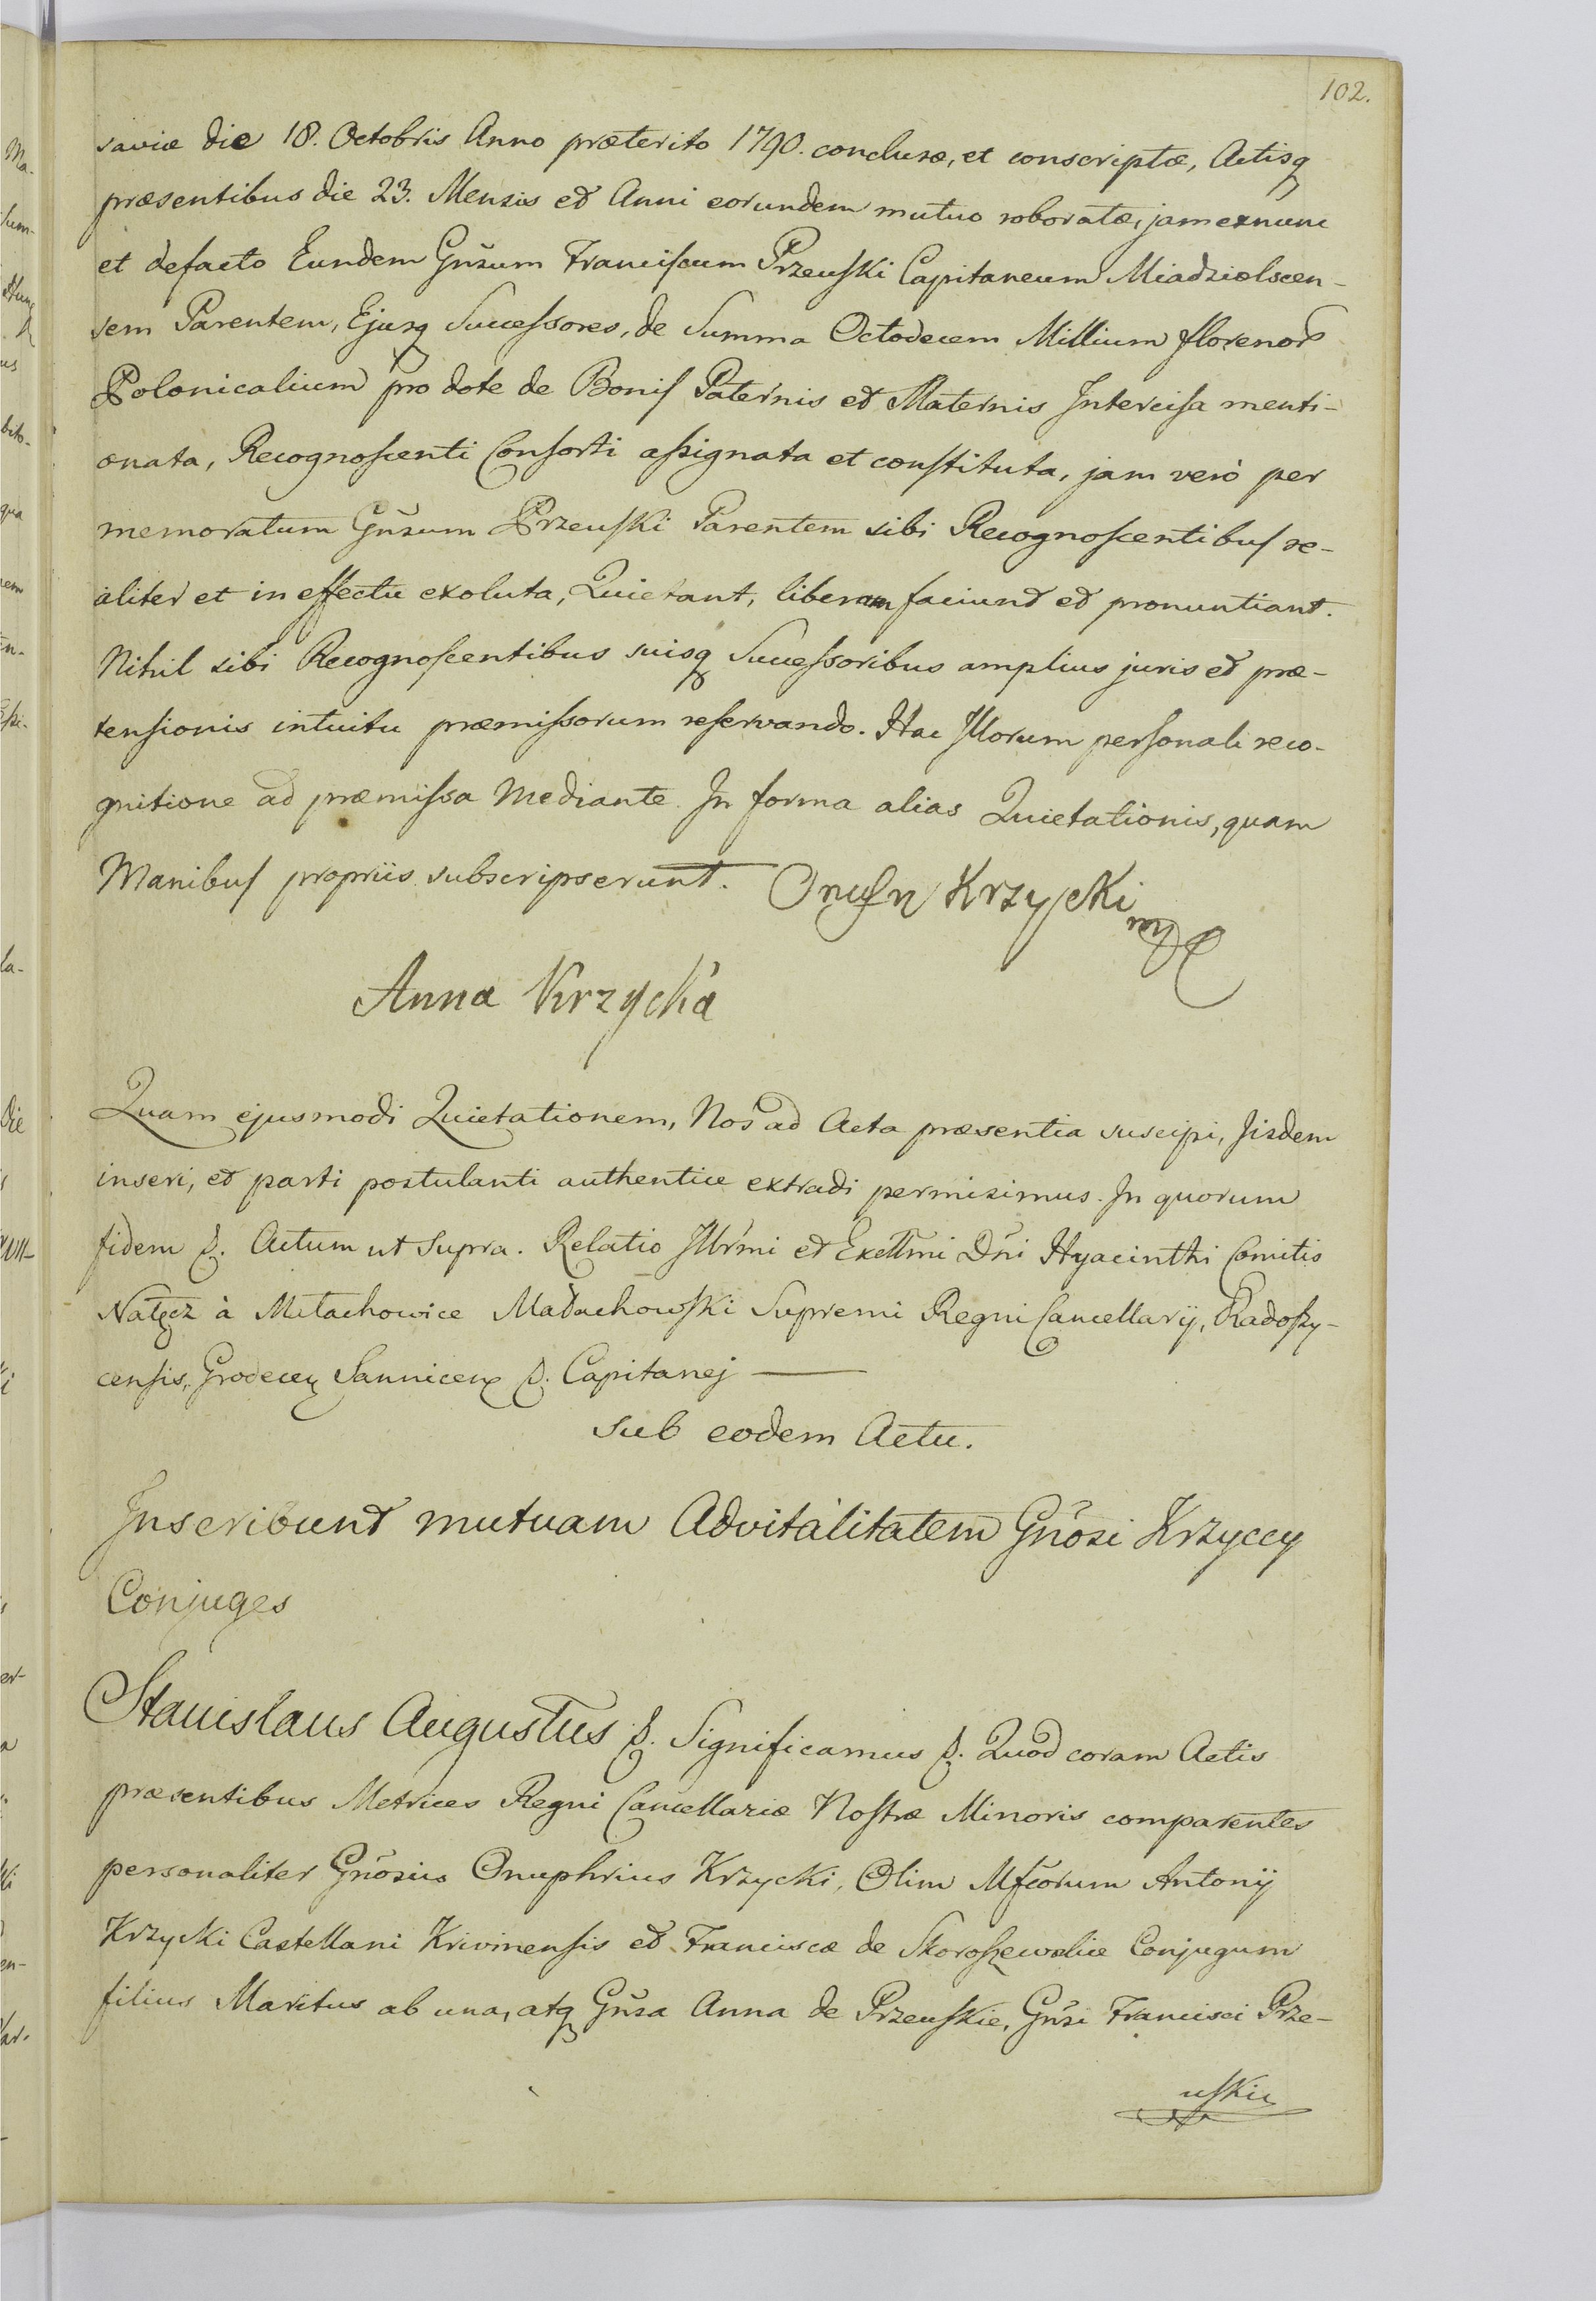 102.
saviæ die 18. Octobris Anno præterito 1790. conclusæ, et conscriptæ, Actisq
præsentibus die 23. Mensis et Anni eorundem mutuo roboratæ, jam exnunc
et defacto Eundem Gnsum Franciscum Przeuski Capitaneum Miadziolscen-
sem Parentem, Ejusq Successores, de Summa Octodecem Millium florenor
Polonicalium pro dote de Bonis Paternis et Maternis Intercisa menti-
onata, Recognoscenti Consorti assignata et constituta, jam verò per
memoratum Gnsum Przeuski Parentem sibi Recognoscentibus re-
aliter et in effectu exoluta, Quietant, liberum faciunt et pronuntiant.
Nihil sibi Recognoscentibus suisq Successoribus amplius juris et præ-
tensionis intuitu præmissorum reservando. Hac Illorum personali reco-
gnitione ad præmissa Mediante. In forma alias Quietationis, quam
Manibus propriis subscripserunt. Onufry Krzycki
Anna Krzycka
Quam ejusmodi Quietationem, Nos ad Acta præsentia suscipi, Iisdem
inseri, et parti postulanti authentice extradi permisimus. In quorum
fidem &. Actum ut Supra. Relatio Illrmi et Excellmi Dni Hyacinthi Comitis
Nałęcz à Małachowice Małachowski Supremi Regni Cancellarij, Radoszy-
censis, Grodecen Sannicen &. Capitanej
Sub eodem Actu.
Inscribunt mutuam Advitalitatem Gnosi Krzyccy
Conjuges
Stanislaus Augustus &. Significamus &. Quod coram Actis
præsentibus Metrices Regni Cancellariæ Nostræ Minoris comparentes
personaliter Gnosus Onuphrius Krzycki, Olim Mfcorum Antonij
Krzycki Castellani Krivinensis et Franciscæ de Skoroszewskie Conjugum
filius Maritus ab una, atq Gnsa Anna de Przeuskie, Gnsi Francisci Prze-
uski